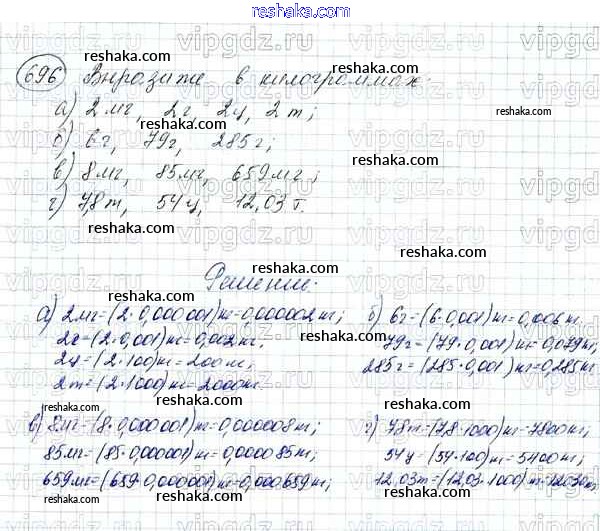 reshaka.com
696 Выразите в килограммах:
а) 2 мг, 2г, 2ц, 2 т;
б) 6г, 79г, 285г;
в) 8мг, 85мг, 659мг;
г) 7,8т, 54ц, 12,03т.
Решение.
а) 2мг=(2·0,000001)кг=0,000002кг;
2г=(2·0,001)кг=0,002кг;
2ц=(2·100)кг=200кг;
2т=(2·1000)кг=2000кг.
б) 6г=(6·0,001)кг=0,006кг.
79г=(79·0,001)кг=0,079кг;
285г=(285·0,001)кг=0,285кг
в) 8мг=(8·0,000001)кг=0,000008кг;
85мг=(85·0,000001)кг=0,000085кг;
659мг=(659·0,000001)кг=0,000659кг;
г) 7,8т=(7,8·1000)кг=7800кг;
54ц=(54·100)кг=5400кг;
12,03т=(12,03·1000)кг=12030кг.